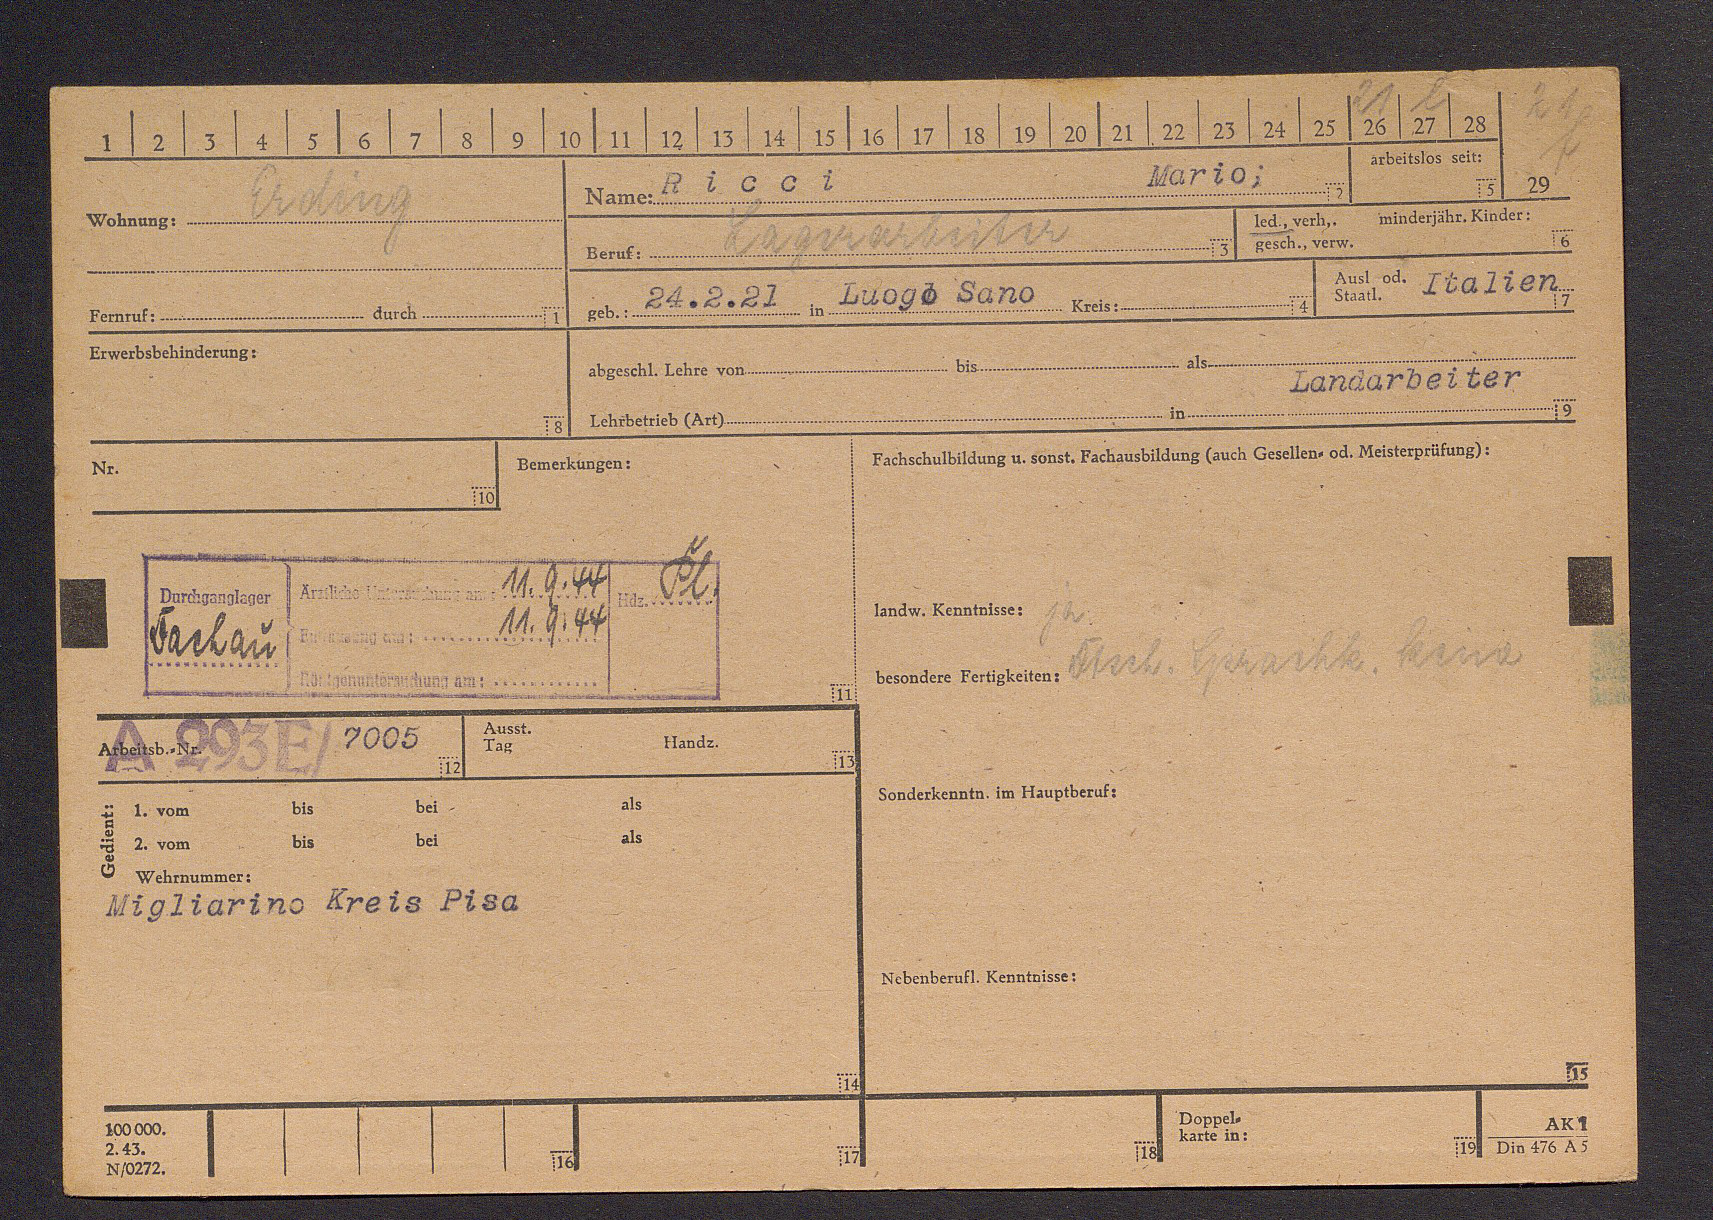 21 l
1 2 3 4 5 6 7 8 9 10 11 12 13 14 15 16 17 18 19 20 21 22 23 24 25 26 27 28
29
Wohnung: Erding
Name: Ricci Mario; 2
arbeitslos seit: 5
Beruf: Lagerarbeiter 3
led., verh,. minderjähr. Kinder:
gesch., verw. 6
Fernruf: durch 1
geb.: 24.2.21 in Luogo Sano Kreis: 4
Ausl od. Staatl. Italien 7
Erwerbsbehinderung: 8
abgeschl. Lehre von bis als
Landarbeiter
Lehrbetrieb (Art) in 9
Nr. 10
Bemerkungen:
Fachschulbildung u. sonst. Fachausbildung (auch Gesellen- od. Meisterprüfung):
Durchganglager
Dachau
Ärztliche Untersuchung am: 11.9.44
Entlausung am: 11.9.44
Röntgenuntersuchung am:
Hdz.
11
landw. Kenntnisse: ja.
besondere Fertigkeiten: Dtsch. Sprachk. keine
Arbeitsb.-Nr. A 293E/ 7005 12
Ausst.
Tag Handz. 13
Sonderkenntn. im Hauptberuf:
Gedient:
1. vom bis bei als
2. vom bis bei als
Wehrnummer:
Migliarino Kreis Pisa
14
Nebenberufl. Kenntnisse:
15
100 000.
2. 43.
N/0272.
16
17
18
Doppel-
karte in: 19
AK 1
Din 476 A 5